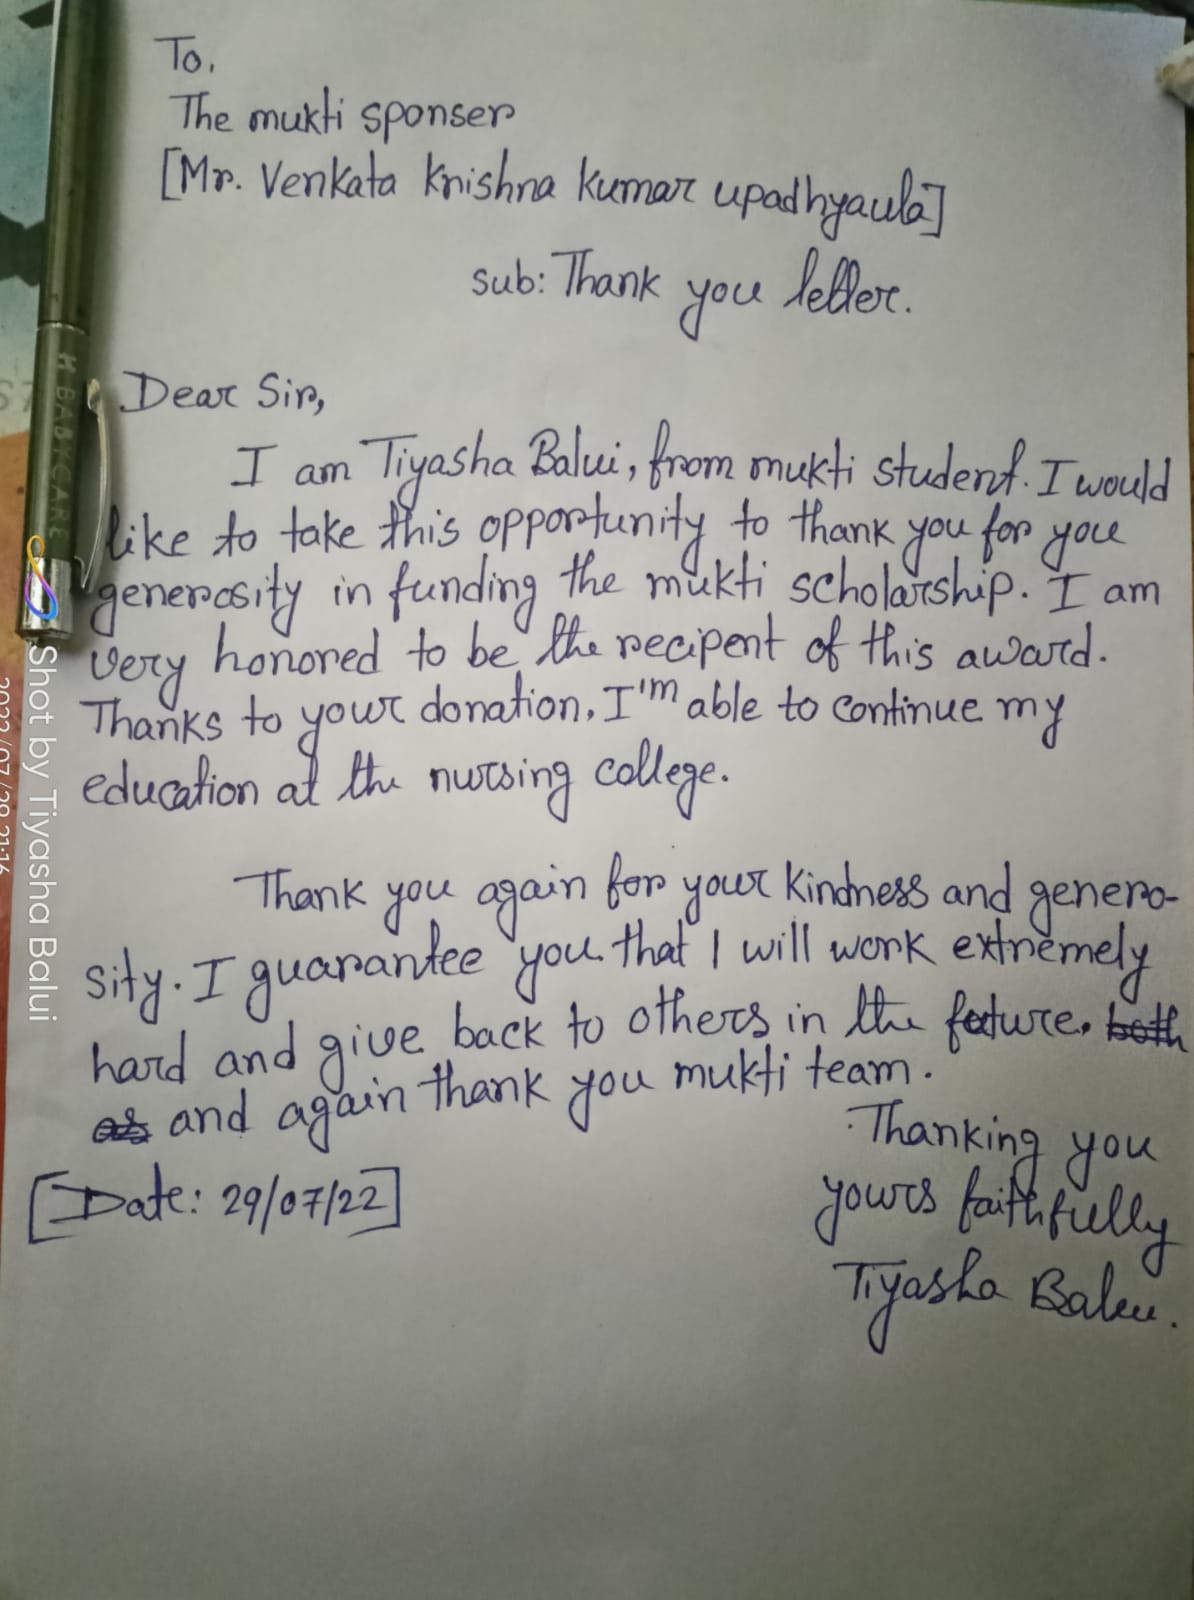 To,
The mukti sponser
[Mr. Venkata Krishna Kumar upadhyaula]
sub: Thank you letter.
Dear Sir,
I am Tiyasha Balui, from mukti student. I would
like to take this opportunity to thank you for you
generosity in funding the mukti scholarship. I am
very honored to be the recipent of this award.
Thanks to your donation, I'm able to continue my
education at the nursing college.
Thank you again for your kindness and genero-
sity. I guarantee you that I will work extremely
hard and give back to others in the future. both
as and again thank you mukti team.
Thanking you
yours faithfully
Tiyasha Balui.
[Date: 29/07/22]
Shot by Tiyasha Balui
2022/07/29 21:16